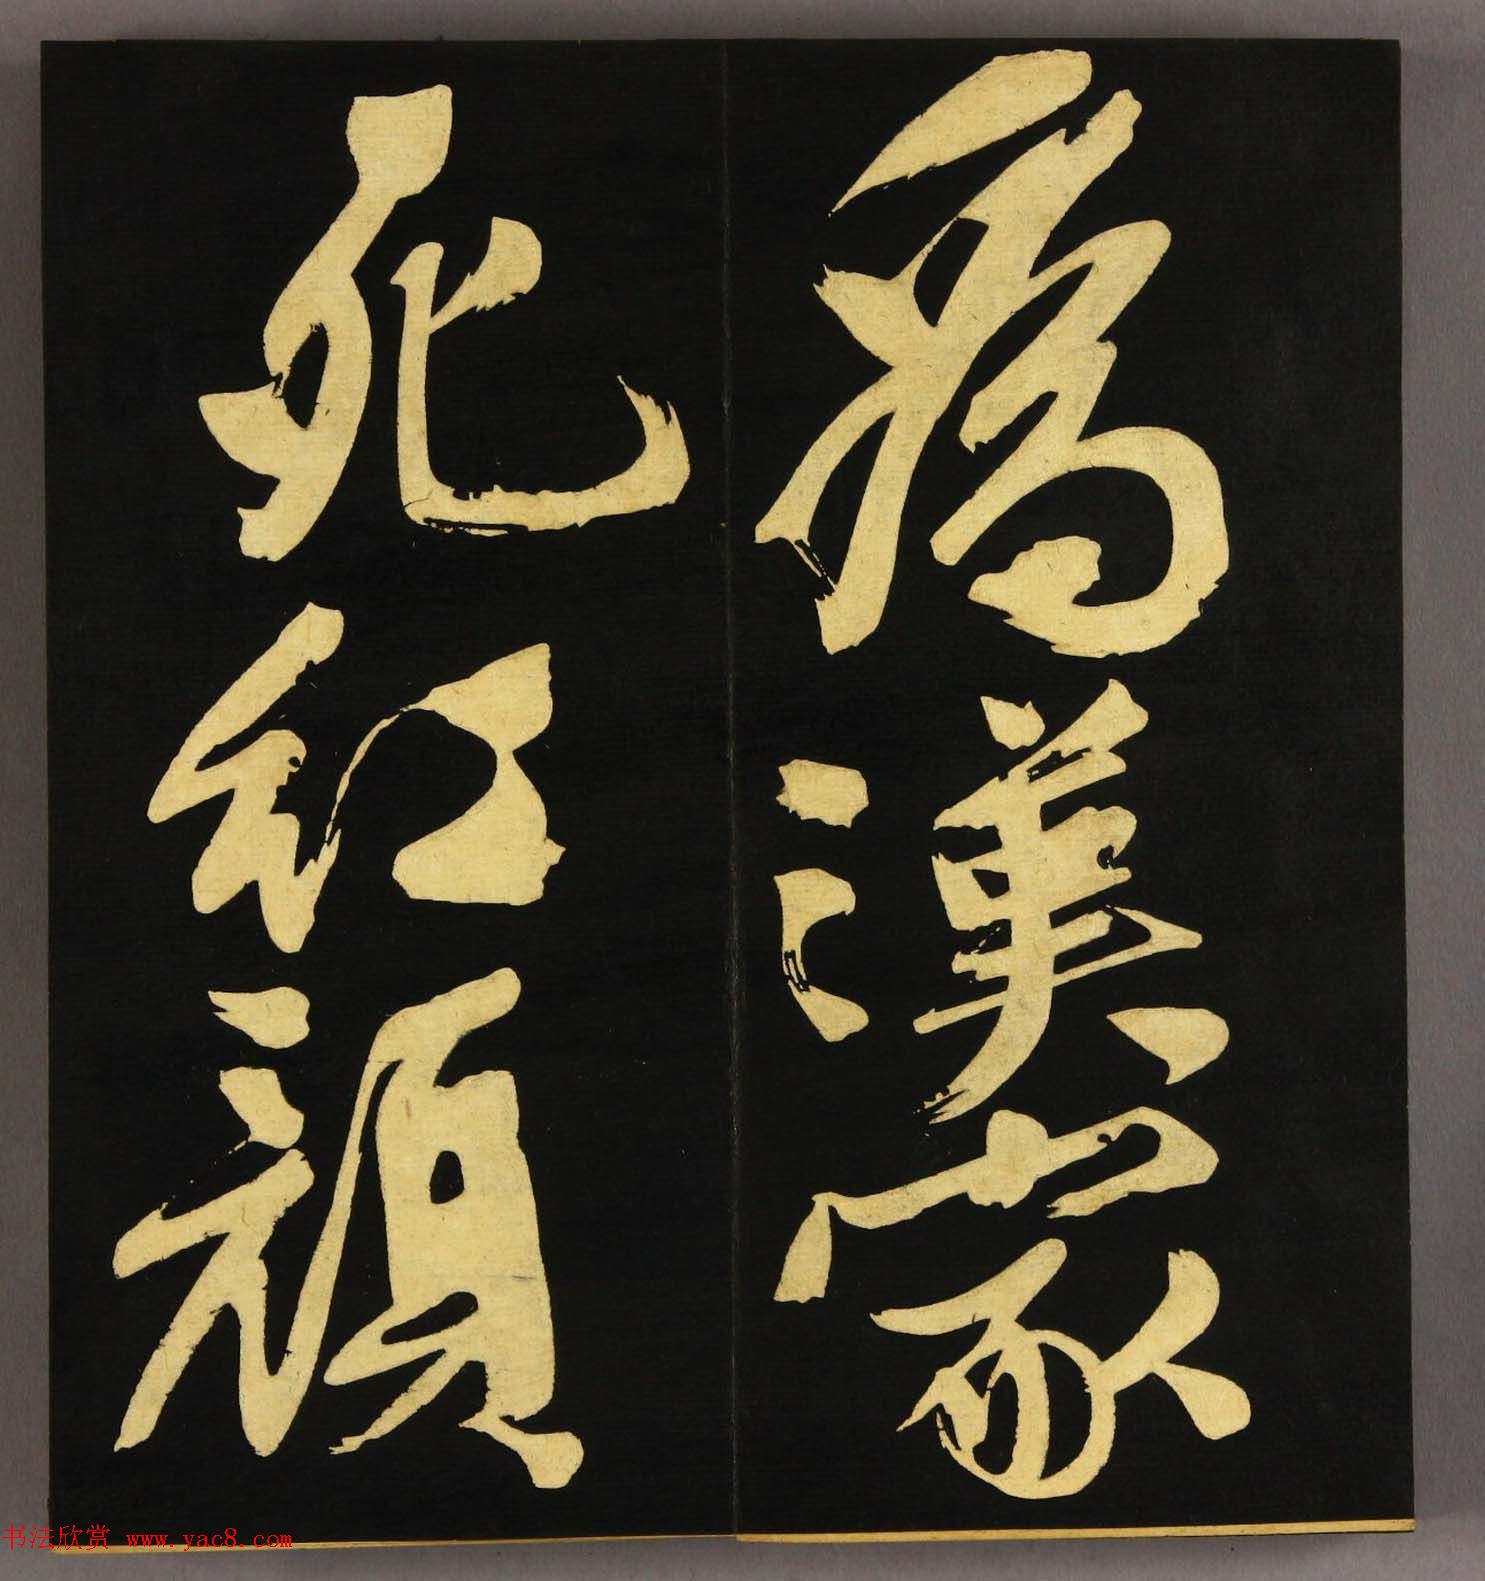 為漢家
死紅顏
书法欣赏 www.yac8.com